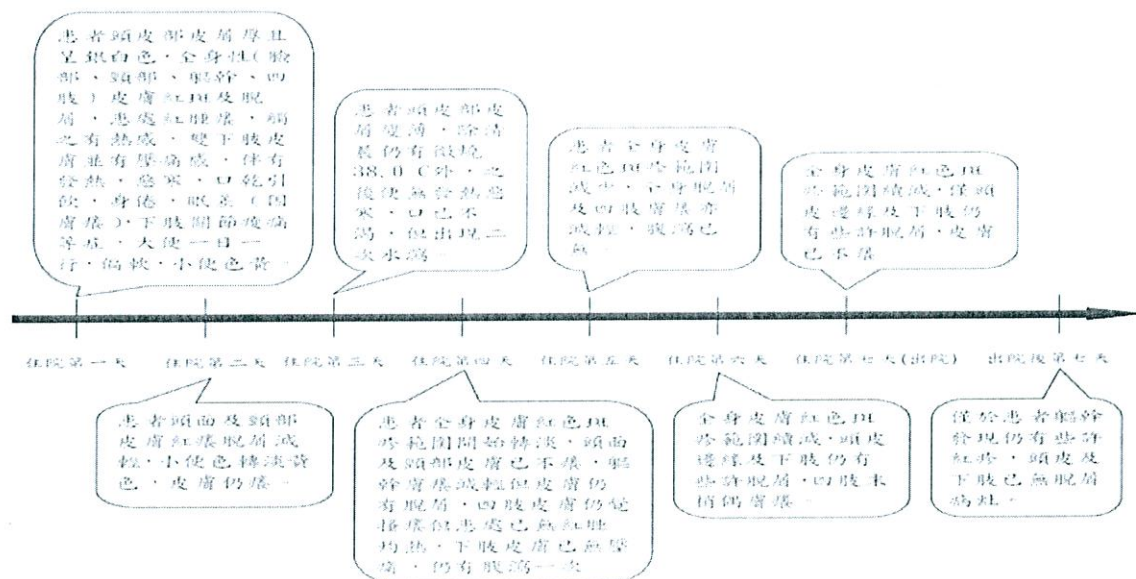 患者頭皮部皮屑厚且
呈銀白色，全身性(臉
部、頸部、軀幹、四
肢)皮膚紅斑及脫
屑，患處紅腫癢，觸
之有熱感，雙下肢皮
膚並有壓痛感，伴有
發熱，惡寒，口乾引
飲，身倦，眠差(因
膚癢)，下肢關節痠痛
等症，大便一日一
行，偏軟，小便色黃。
患者頭皮部皮
屑變薄，除清
晨仍有微燒
38.0 C外，之
後便無發熱惡
寒，口已不
渴，但出現二
次水瀉。
患者全身皮膚
紅色斑疹範圍
減少，全身脫屑
及四肢膚癢亦
減輕，腹瀉已
無。
全身皮膚紅色斑
疹範圍續減，僅頭
皮邊緣及下肢仍
有些許脫屑，皮膚
已不癢
住院第一天
住院第二天
住院第三天
住院第四天
住院第五天
住院第六天
住院第七天(出院)
出院後第七天
患者頭面及頸部
皮膚紅癢脫屑減
輕，小便色轉淡黃
色，皮膚仍癢。
患者全身皮膚紅色斑
疹範圍開始轉淡，頭面
及頸部皮膚已不癢，軀
幹膚癢減輕但皮膚仍
有脫屑，四肢皮膚仍覺
搔癢但患處已無紅腫
灼熱，下肢皮膚已無壓
痛，仍有腹瀉一次
全身皮膚紅色斑
疹範圍續減，頭皮
邊緣及下肢仍有
些許脫屑，四肢末
梢偶膚癢。
僅於患者軀幹
發現仍有些許
紅疹，頭皮及
下肢已無脫屑
病灶。